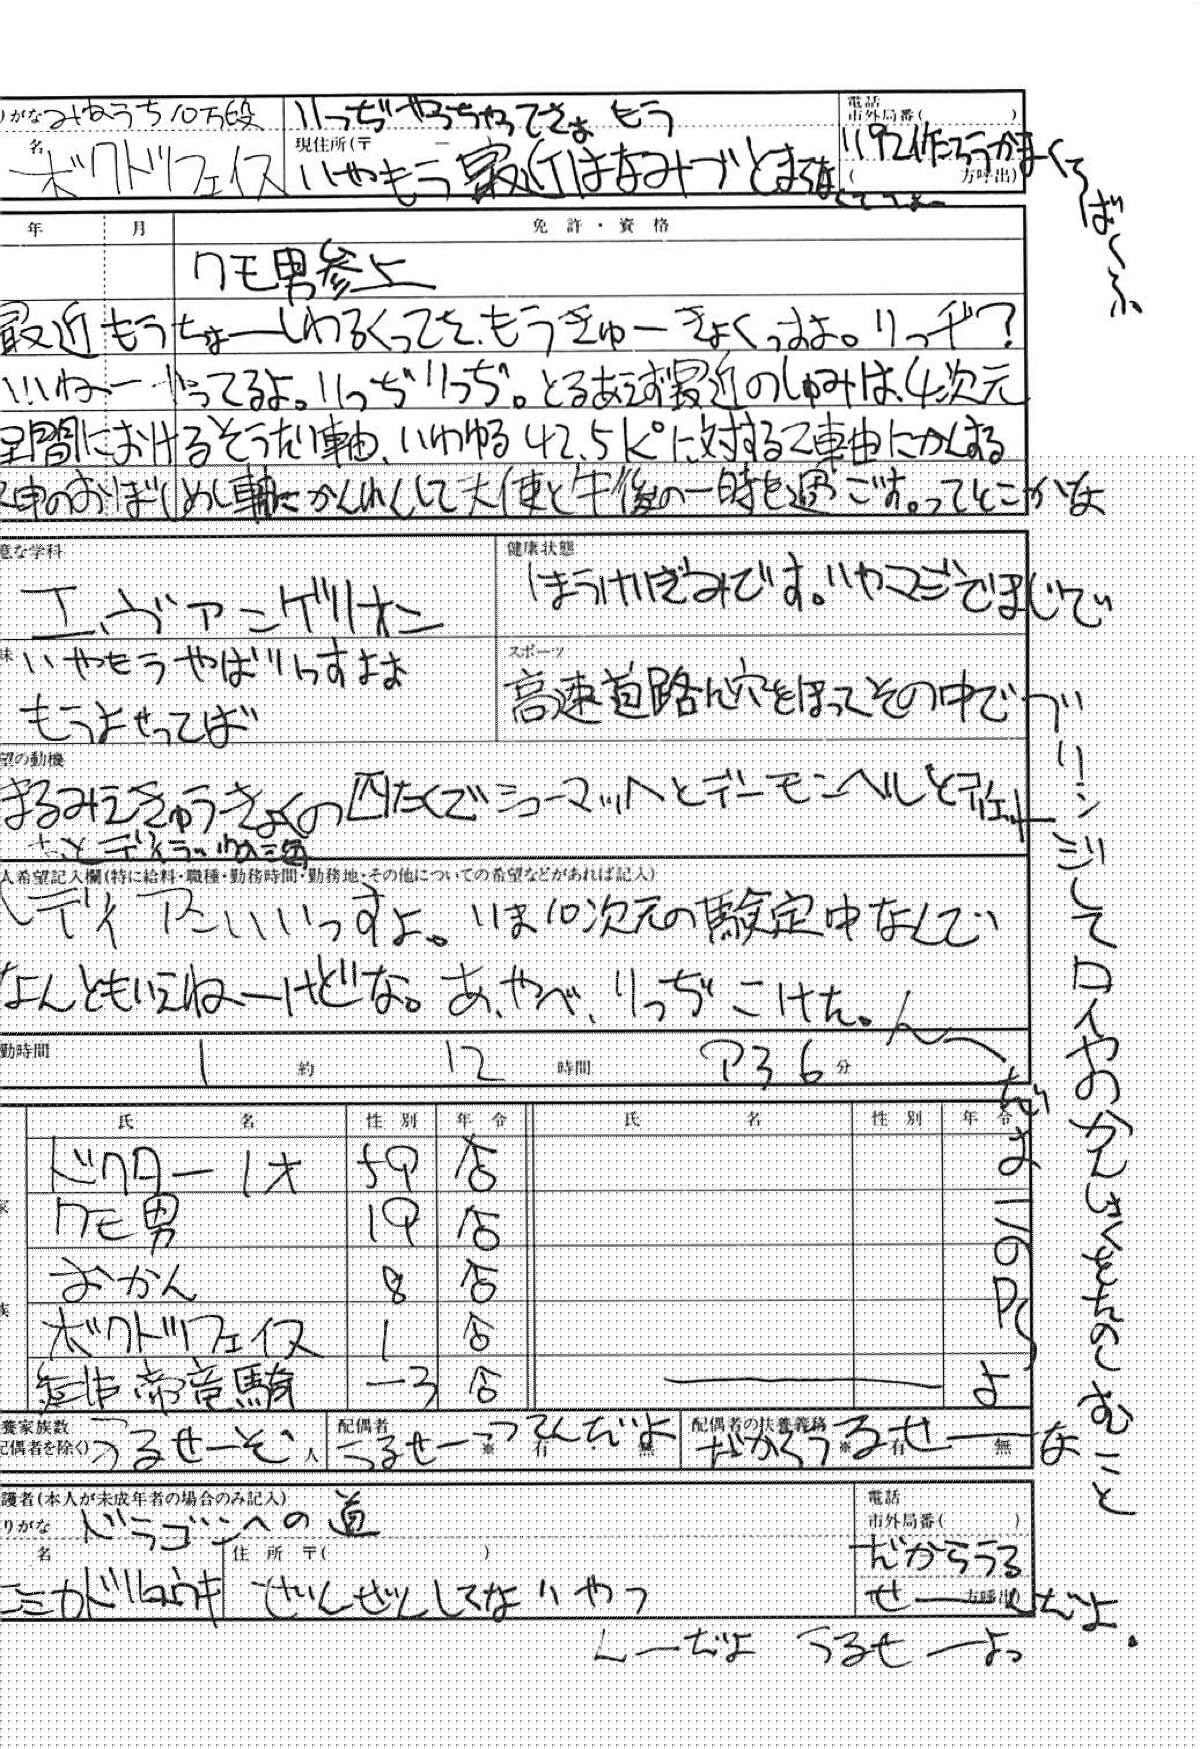 りがな みねうち10万段
名 ボクドフェイス
りっぢやっちゃってさぁ もう
現住所(〒 -
いやもう最近はなみづとまらな
電話
市外局番( )
1192作ろうかまくらばくふ
( 方呼出)
年 月 免許・資格
クモ男参上
最近もうちょーしわるくってさ、もうきゅーきょくっすよ。リッヂ?
いいねーやってるよ。りっぢりっぢ。とるあえず最近のしゅみは、4次元
空間におけるそうたい軸、いわゆる42.5K°に対するZ軸にかんする
神のおぼしめし軸にかんれんして天使と午後の一時を過ごす。ってとこかな
意な学科
エヴァンゲリオン
健康状態
ほうけいぎみです。いやマジでまじで
味
いやもうやばいっすよぉ
もうよせってば
スポーツ
高速道路に穴をほってその中で
ブリッジしてロイヤのかんしょくをたのしむこと
望の動機
まるみえきゅうきょくの四たくでシューマッハとデーモンヘルとティエリー
人希望記入欄(特に給料・職種・勤務時間・勤務地・その他についての希望などがあれば記入)
ヘディアンいいっすよ。いま10次元の験定中なんでい
なんともいえねーけどな。あ、やべ、りっぢこけた。
勤時間 1 約 12 時間 736 分
氏 名 性別 年令 氏 名 性別 年令
ドクター1才 59 否
クモ男 19 否
おかん 8 否
ボクドフェイス 1 否
緋帝竜騎 -3 否
家
族
だまこのPSよ
養家族数
配偶者を除く) うるせーぞ 人
配偶者
うるせーってんだよ ※ 有 無
配偶者の扶養義務
だからうるせーな ※ 有 無
護者(本人が未成年者の場合のみ記入)
りがな ドラゴンへの道
名 ミカドリュウキ
住所 〒( )
ぜんぜんしてないやつ
電話
市外局番( )
だからうる
せーんだよ。
方呼出)
んーだよ うるせーよっ